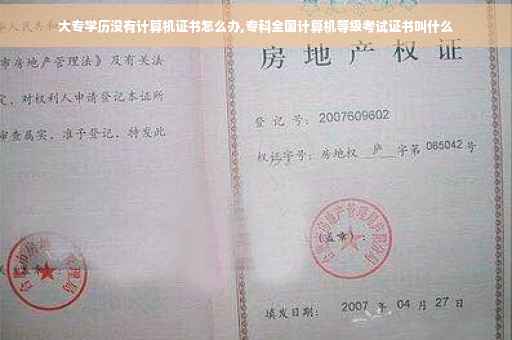 大专学历没有计算机证书怎么办,专科全国计算机等级考试证书叫什么
华人民共和
市房地产管理法》及有关法
定，对权利人申请登记本证所
审查属实，准予登记，特发此
房地产权证
登记号：2007609602
权证字号：房地权 庐 字第 085042 号
(盖章)：
填发日期： 2007 年 04 月 27 日